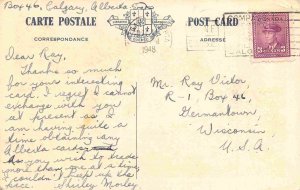 Box 46, Calgary, Alberta
CARTE POSTALE
POST CARD
CORRESPONDANCE
ADRESSE
1948
Dear Ray,
Thanks so much
for your interesting
card. I regret I cannot
exchange with you
at present as I
am having quite a
time obtaining any
Alberta cards
As you wish to trade
more than one at a time, I
couldn't keep up the
pace Shirley Morley
Mr. Ray Victor
R-1 Box 46,
Germantown,
Wisconsin
U.S.A.
3 3